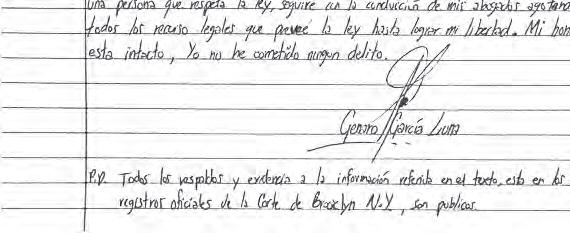 una persona que respeta la ley, seguire con la conducción de mis abogados agotand
todos los recurso legales que preveé la ley hasta lograr mi libertad. Mi hon
esta intacto, Yo no he cometido ningun delito.
Genaro García Luna
P.D. Todos los respaldos y evidencia a la información referida en el texto, esta en los
registros oficiales de la Corte de Brooklyn N.Y., son publicos.